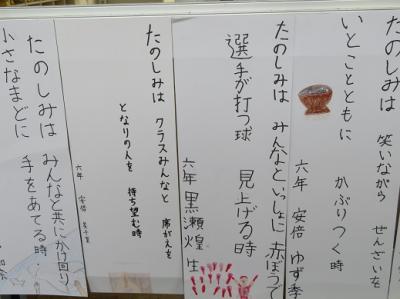 たのしみは 笑いながら ぜんざいを
いとことともに かぶりつく時
六年 安倍 ゆず季
たのしみは みんなといっしょに 赤ぼうで
選手が打つ球 見上げる時
六年 黒瀬煌生
たのしみは クラスみんなと 席がえを
となりの人を 待ち望む時
六年 安倍
たのしみは みんなと共にかけ回り
小さなまどに 手をあてる時